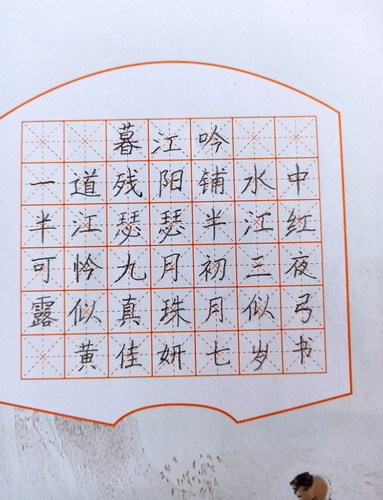 暮江吟
一道残阳铺水中
半江瑟瑟半江红
可怜九月初三夜
露似真珠月似弓
黄佳妍七岁书